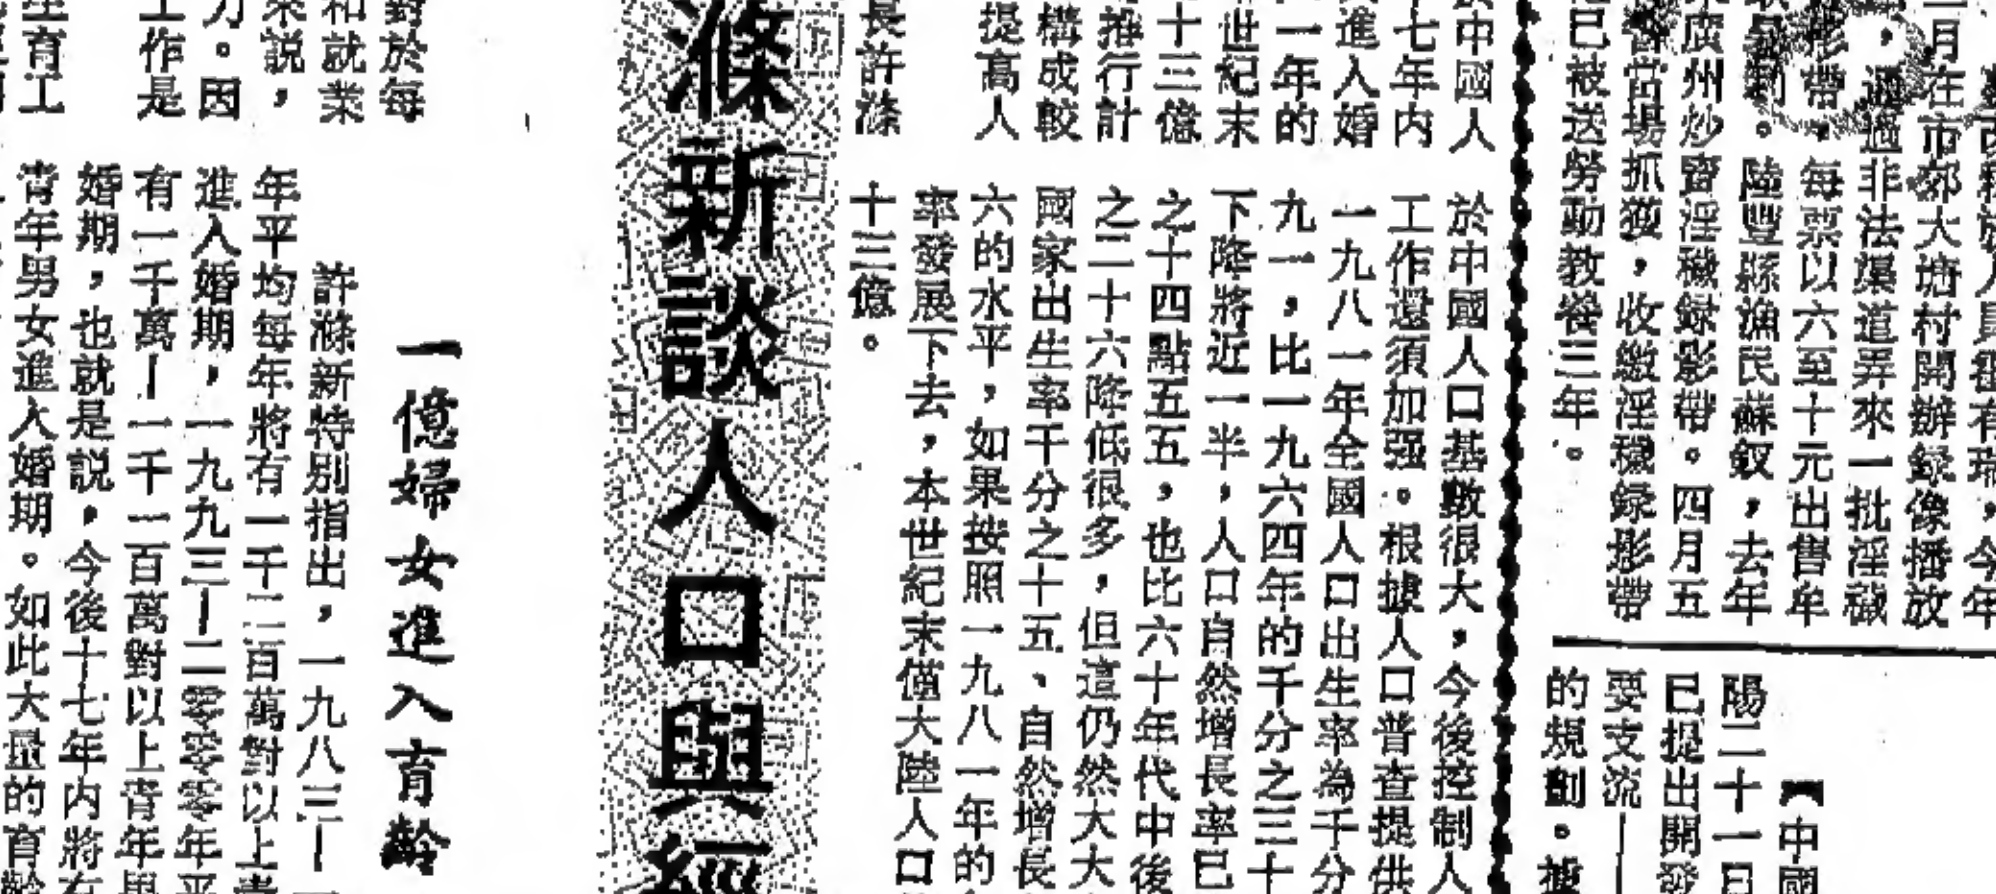 有瑞，今年
月在市郊大塘村開辦録像播放
，通過非法渠道弄來一批淫穢
影帶，每票以六至十元出售牟
。陸豐縣漁民蘇釵，去年
廣州炒賣淫穢録影帶。四月五
當場抓獲，收繳淫穢録影帶
已被送勞動教養三年。
【中國
陽二十一日
已提出開發
要支流—
的規劃。據
於中國人
七年內
進入婚
一年的
世紀末
十三億
推行計
構成較
提高人
長許滌
於中國人口基數很大，今後控制人
工作還須加强。根據人口普查提供
一九八一年全國人口出生率為千分
九一，比一九六四年的千分之三十
下降將近一半，人口自然增長率已
之十四點五五，也比六十年代中後
之二十六降低很多，但這仍然大大
國家出生率千分之十五、自然增長
六的水平，如果按照一九八一年的
率發展下去，本世紀末僅大陸人口
十三億。
滌新談人口與經
對於每
和就業
來説，
力。因
工作是
生育工
一億婦女進入育齡
許滌新特別指出，一九八三—
年平均每年將有一千二百萬對以上青
進入婚期，一九九三—二零零零年平
有一千萬—一千一百萬對以上青年男
婚期，也就是説，今後十七年內將有
青年男女進入婚期。如此大量的育齡